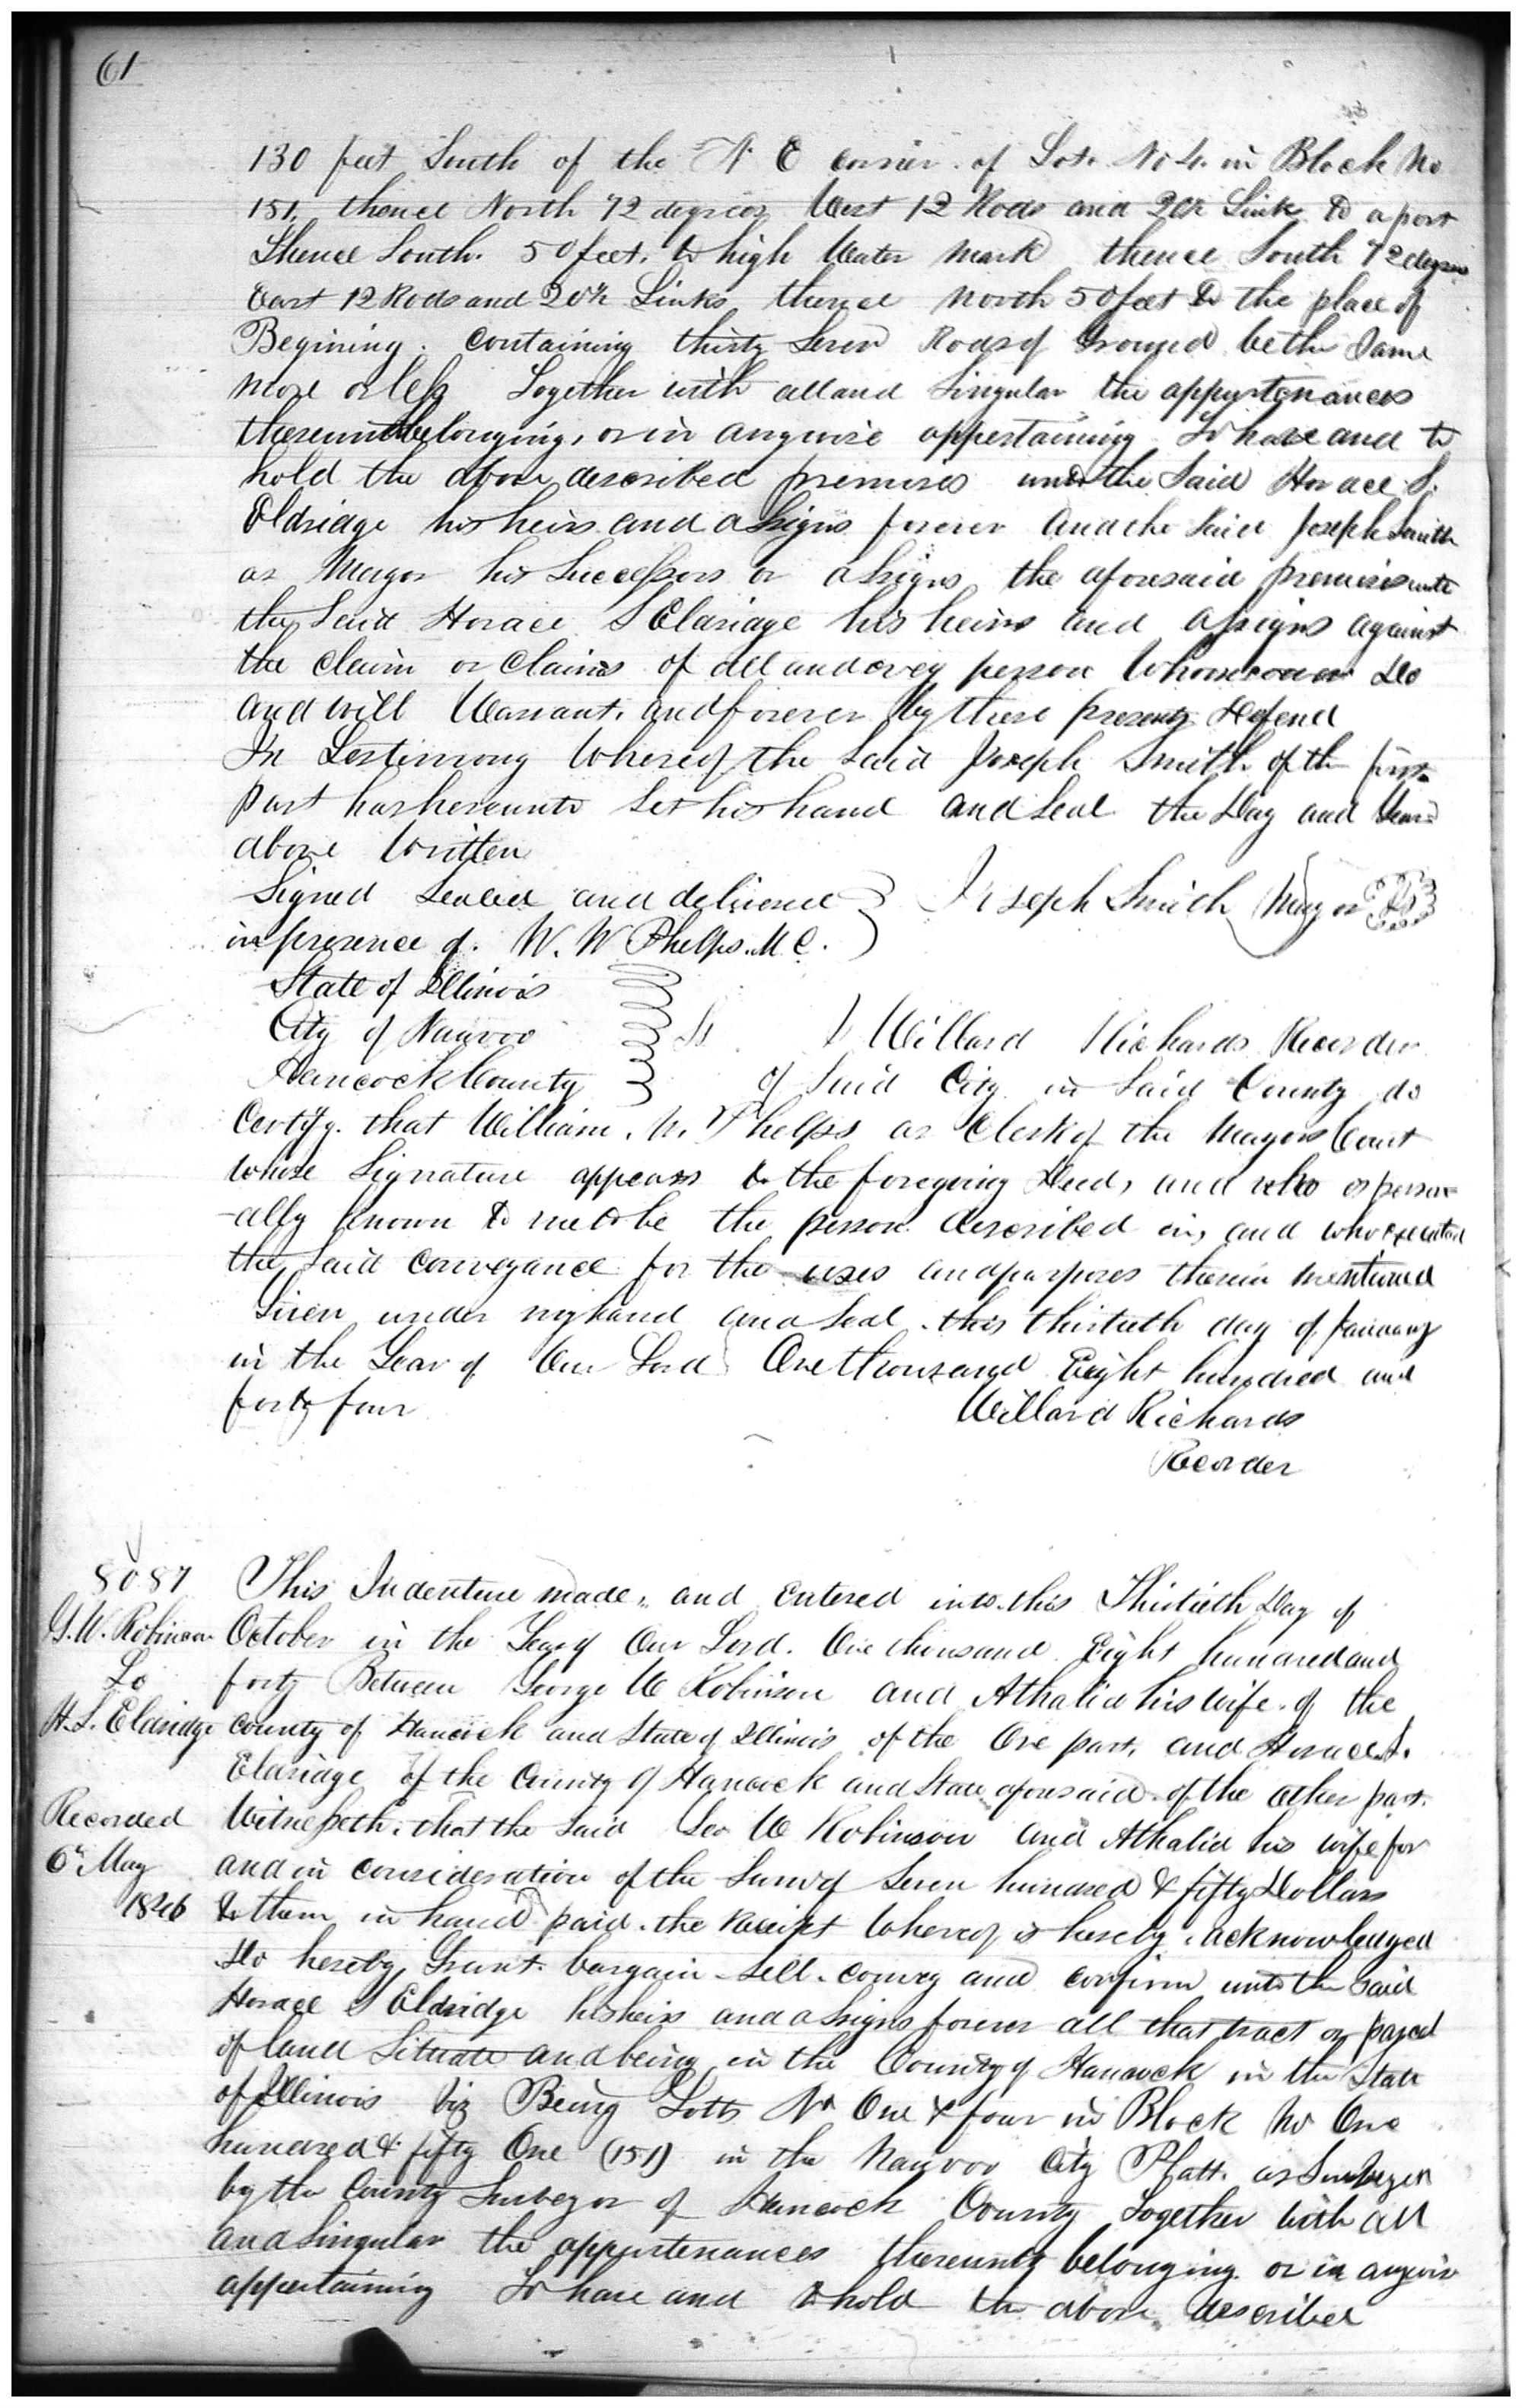 61
130 feet South of the N E corner of Lot. No 4. in Block No
151. thence North 72 degrees West 12 Rods and 20½ Links to a post
Thence South. 50 feet. to high Water Mark thence South 72 degrees
East 12 Rods and 20½ Links thence North 50 feet to the place of
Begining. Containing thirty Seven Rods of Ground be the Same
more or less Together with all and Singular the appurtenances
thereunto belonging, or in anywise appertaining To have and to
hold the above described premises unto the Said Horace S.
Eldridge his heirs and assigns forever And the Said Joseph Smith
as Mayor his Successors or assigns the aforesaid premises unto
the Said Horace S Eldridge his heirs and assigns against
the Claim or Claims of all and every person Whomsoever do
and will Warrant. and forever by these presents Defend
In Testimony Whereof the Said Joseph Smith of the first
part has hereunto Set his hand and Seal the Day and Year
above Written
Signed Sealed and delivered Joseph Smith Mayor
in presence of. W. W Phelps. M. C.
State of Illinois
City of Nauvoo Ss I Willard Richards Recorder
Hancock County of Said City in Said County do
Certify. that William. W. Phelps as Clerk of the Mayors Court
whose Signature appears to the foregoing Deed, and who is person-
-ally known to me to be the person described in, and who executed
the Said Conveyance for the uses and purposes therein mentioned
Given under my hand and Seal this thirtieth day of January
in the Year of Our Lord One thousand Eight hundred and
forty four Willard Richards
Recorder
8087 This Indenture made, and Entered into this Thirtieth Day of
G. W. Robinson October in the Year of Our Lord. One thousand Eight hundred and
To forty Between George W Robinson and Athalia his wife. of the
H. S. Eldridge County of Hancock and State of Illinois of the One part, and Horace S.
Eldridge of the County of Hancock and State aforesaid of the other part.
Recorded Witnesseth. that the Said Geo W Robinson and Athalia his wife for
6th May and in consideration of the Sum of Seven hundred & fifty Dollars
1846 to them in hand paid. the Receipt Whereof is hereby acknowledged
Do hereby Grant. bargain Sell. convey and confirm unto the Said
Horace S Eldridge his heirs and assigns forever all that tract or parcel
of land Situate and being in the County of Hancock in the State
of Illinois Viz Being Lotts No One & four in Block No One
hundred & fifty One (151) in the Nauvoo City Platt. as Surveyed
by the County Surveyor of Hancock County Together with all
and Singular the appurtenances thereunto belonging or in anywise
appertaining To have and to hold the above described